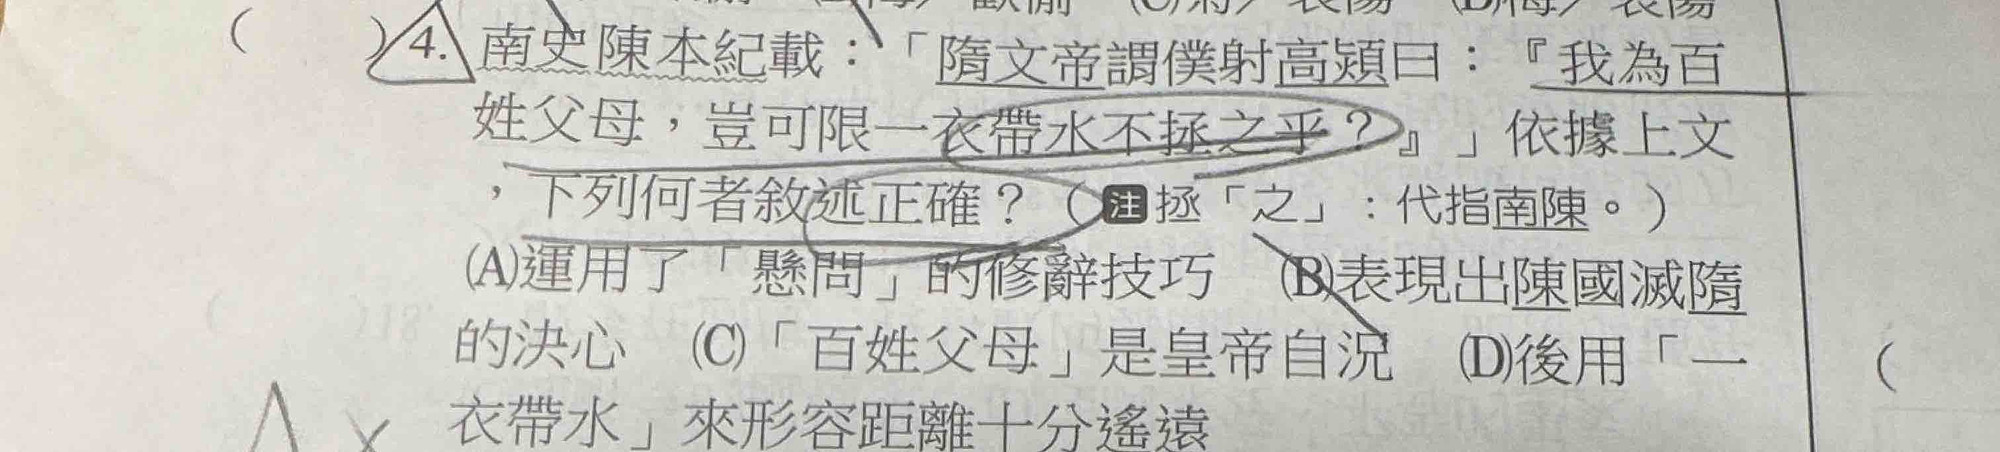 (　　)4. 南史陳本紀載：「隋文帝謂僕射高熲曰：『我為百
姓父母，豈可限一衣帶水不拯之乎？』」依據上文
，下列何者敘述正確？（注拯「之」：代指南陳。）
(A)運用了「懸問」的修辭技巧　(B)表現出陳國滅隋
的決心　(C)「百姓父母」是皇帝自況　(D)後用「一
衣帶水」來形容距離十分遙遠